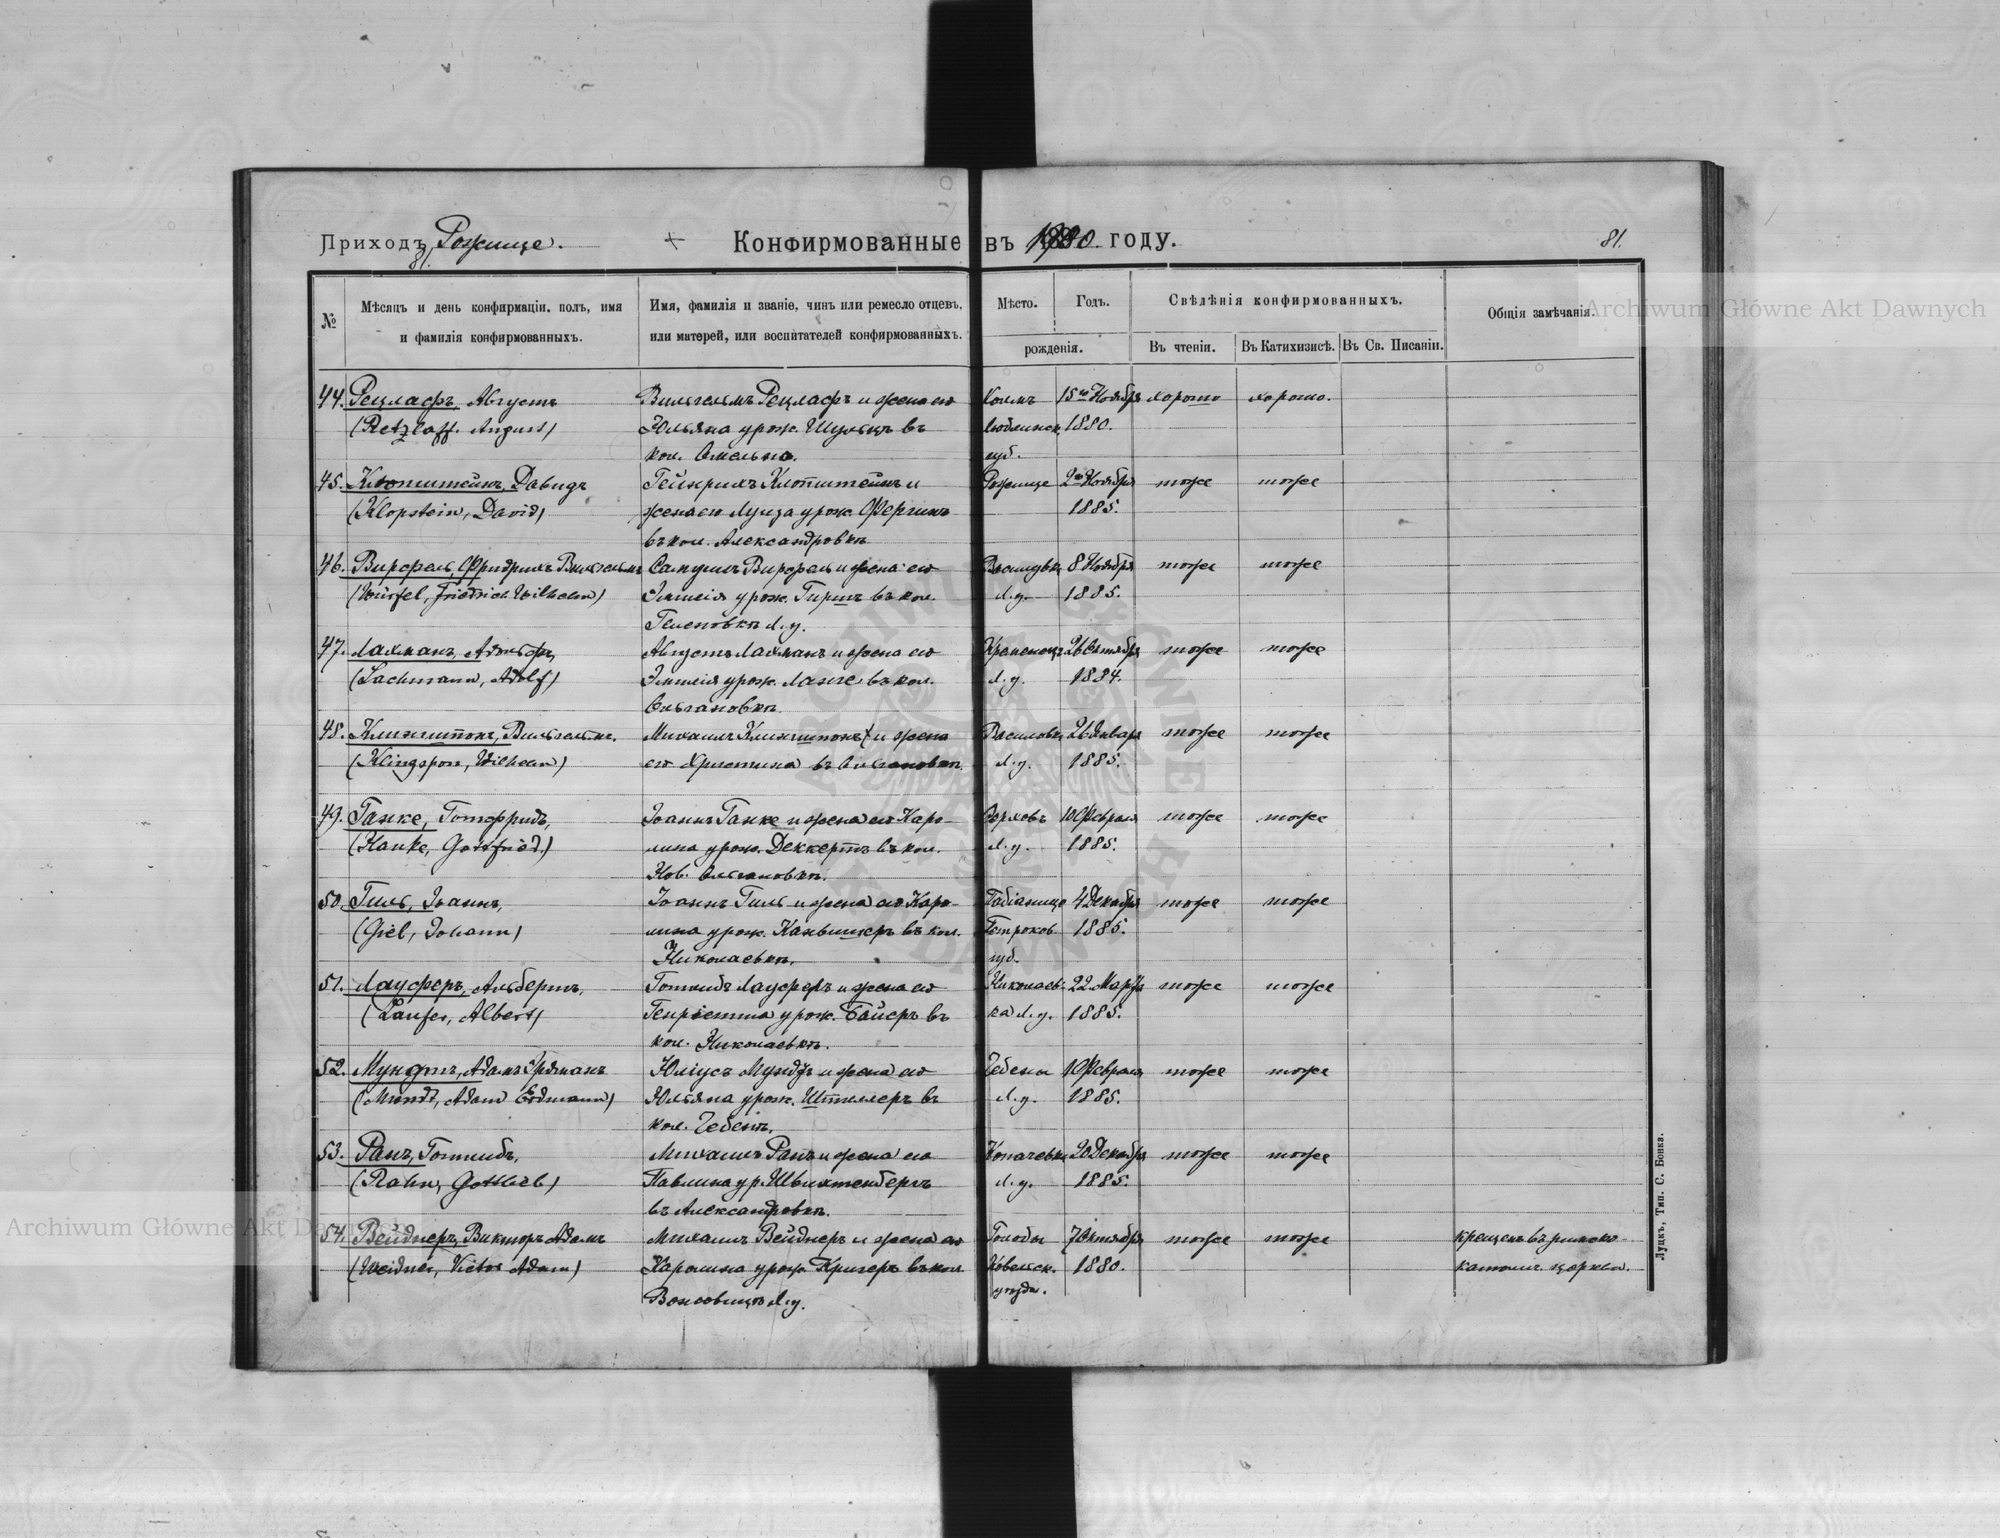 Приходъ Рожище. + Конфирмованные въ 1900. году. 81.
81.
№
Мѣсяцъ и день конфирмаціи, полъ, имя и фамилія конфирмованныхъ.
Имя, фамилія и званіе, чинъ или ремесло отцевъ, или матерей, или воспитателей конфирмованныхъ.
Мѣсто. Годъ.
рожденія.
Свѣдѣнія конфирмованныхъ.
Въ чтеніи. Въ Катихизисѣ. Въ Св. Писаніи.
Общія замѣчанія.
44. Рецлафъ, Августъ Вильгельмъ Рецлафъ и жена его Холмъ 15го Ноября хорошо хорошо.
(Retzlaff. August) Юльяна урож. Шульцъ въ Люблинск. 1880.
кол. Омельно. губ.
45. Клопштейнъ, Давидъ Гейнрихъ Клопштейнъ и Рожище 2го Ноября тоже тоже
(Klopstein, David) жена его Луиза урож. Фергинъ 1885.
въ кол. Александровкѣ
46. Вирфель, Фридрихъ Вильгельмъ Самуилъ Вирфель и жена его 8 Ноября тоже тоже
(Würfel, Friedrich Wilhelm) Эмилія урож. Гиршъ въ кол. Л.у. 1885.
Геленовкѣ Л.у.
47. Лахманъ, Адольфъ, Августъ Лахманъ и жена его Кременецъ 26 Октября тоже тоже
(Lachmann, Adolf) Эмилія урож. Ланге въ кол. Л.у. 1884.
Ольгановкѣ
48. Клингшпонъ, Вильгельмъ. Михаилъ Клингшпонъ и жена Василовка 26 Января тоже тоже
(Klingspon, Wilhelm) его Христина въ Ольгановкѣ. Л.у. 1885.
49. Ганке, Готфридъ, Іоаннъ Ганке и жена его Каро- Торховъ 10 Февраля тоже тоже
(Hanke, Gottfried.) лина урож. Деккертъ въ кол. Л.у. 1885.
Нов. Ольгановкѣ.
50. Гиль, Іоаннъ, Іоаннъ Гиль и жена его Каро- Пабіанице 4 Декабря тоже тоже
(Giel, Johann) лина урож. въ кол. Петроков. 1885.
Николаевкѣ. губ.
51. Лауферъ, Альбертъ, Готлибъ Лауферъ и жена его Николаев- 22 Марта тоже тоже
(Laufer, Albert) Генріетта урож. Байеръ въ ка Л.у. 1885.
кол. Николаевкѣ.
52. Мундтъ, Адамъ Эрдманъ Юліусъ Мундтъ и жена его Чебени 10 Февраля тоже тоже
(Mundt, Adam Erdmann) Юльяна урож. Штиллеръ въ Л.у. 1885.
кол. Чебени.
53. Ранъ, Готлибъ, Михаилъ Ранъ и жена его Копачевка 20 Декабря тоже тоже
(Rahn, Gottlieb) Павлина ур. Швихтенбергъ Л.у. 1885.
въ Александровкѣ.
54. Вейднеръ, Викторъ Адамъ Михаилъ Вейднеръ и жена его Голобы 7 Октября тоже тоже крещенъ въ римско-
(Weidner, Victor Adam) Каролина урож. Кригеръ въ кол. Ковельск. 1880. католич. церкви.
Л.у. уѣзда.
Луцкъ, Тип. С. Бонка.
Archiwum Główne Akt Dawnych
Archiwum Główne Akt Dawnych